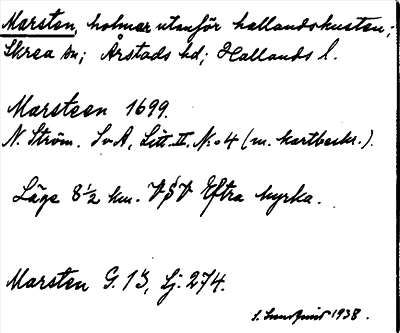 Marsten, holmar utanför hallandskusten;
Skrea sn; Årstads hd; Hallands l.
Marsteen 1699.
N. Ström. SvA, Litt. II. No 4 (m. kartbeskr.).
Läge 8½ km. VSV Eftra kyrka.
Marsten G. 13, Lj. 274.
S. Sundqvist 1938.